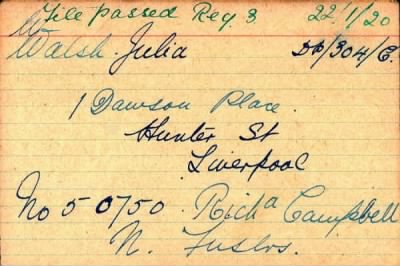 File passed Reg. 3 22/1/20
W
Walsh. Julia Dp/304/C.
1 Dawson Place.
Hunter St
Liverpool
No 50750. Richd Campbell
N. Fuslrs.